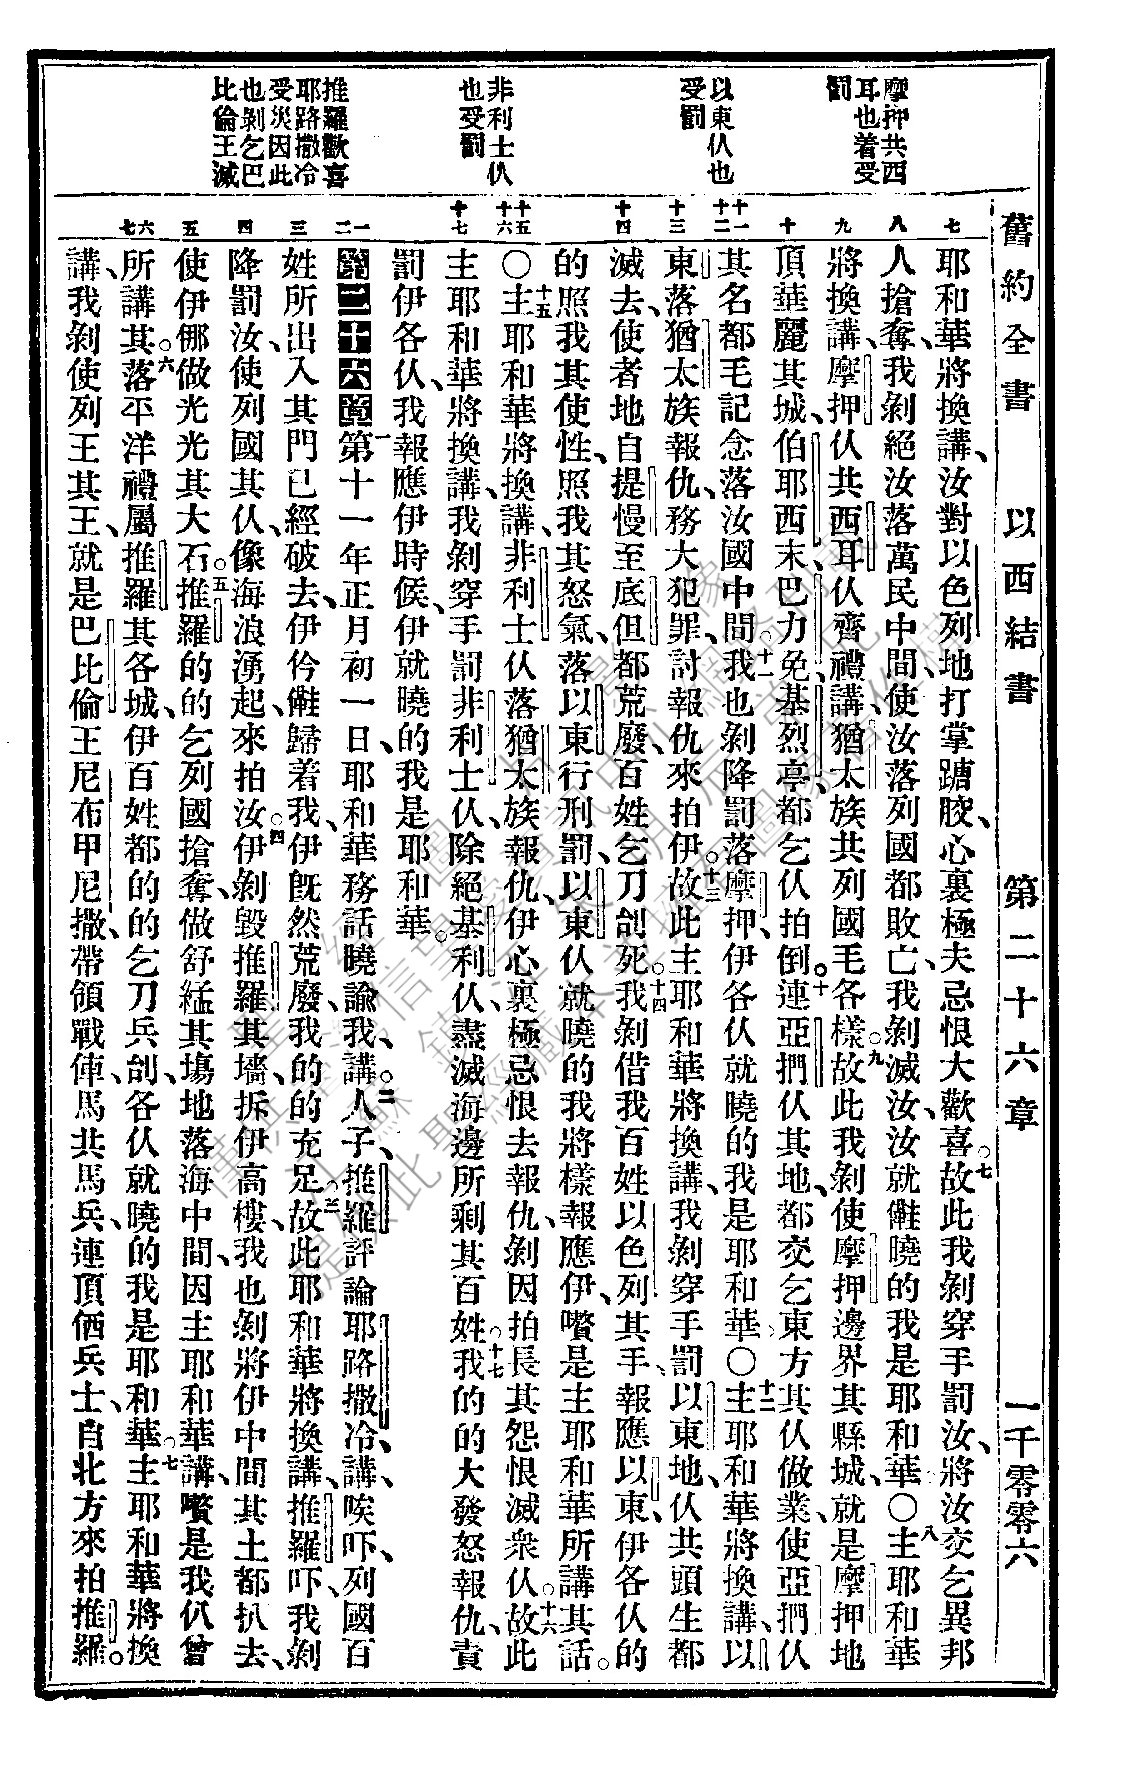 舊約全書 以西結書 第二十六章 一千零零六
摩押共西
耳也着受
罰
以東仈也
受罰
非利士仈
也受罰
推羅歡喜
耶路撒冷
受災因此
也剝乞巴
比倫王滅
七
八
九
十
十一
十二
十三
十四
十五
十六
十七
一
二
三
四
五
六
七
耶和華將換講、汝對以色列地打掌蹧胶、心裏極夫忌恨大歡喜。七故此我剝穿手罰汝、將汝交乞異邦
人搶奪、我剝絕汝落萬民中間、使汝落列國都敗亡、我剝滅汝、汝就儺曉的我是耶和華。〇八主耶和華
將換講、摩押仈共西耳仈齊禮講、猶太族共列國毛各樣。九故此我剝使摩押邊界其縣城、就是摩押地
頂華麗其城、伯耶西末、巴力免、基烈亭、都乞仈拍倒。十連亞捫仈其地、都交乞東方其仈做業、使亞捫仈
其名都毛記念落汝國中間。十一我也剝降罰落摩押、伊各仈就曉的我是耶和華。〇十二主耶和華將換講、以
東落猶太族報仇、務大犯罪、討報仇來拍伊。十三故此主耶和華將換講、我剝穿手罰以東地、仈共頭生都
滅去、使者地自提慢至底但、都荒廢、百姓乞刀刣死。十四我剝借我百姓以色列其手、報應以東、伊各仈的
的照我其使性、照我其怒氣、落以東行刑罰、以東仈就曉的我將樣報應伊、嚽是主耶和華所講其話。
〇十五主耶和華將換講、非利士仈落猶太族報仇、伊心裏極忌恨去報仇、剝因拍長其怨恨滅衆仈。十六故此
主耶和華將換講、我剝穿手罰非利士仈、除絕基利仈、盡滅海邊所剩其百姓。十七我的的大發怒報仇、責
罰伊各仈、我報應伊時候、伊就曉的我是耶和華。
第二十六章 一第十一年正月初一日、耶和華務話曉諭我、講。二人子、推羅評論耶路撒冷、講、唉吓、列國百
姓所出入其門已經破去、伊仱儺歸着我、伊旣然荒廢、我的的充足。三故此耶和華將換講、推羅吓、我剝
降罰汝、使列國其仈、像海浪湧起、來拍汝。四伊剝毀推羅其墻、拆伊高樓、我也剝將伊中間其土都扒去、
使伊㑚做光光其大石。五推羅的的乞列國搶奪、做舒絚其塲地落海中間、因主耶和華講、嚽是我仈曾
所講其。六落平洋禮屬推羅其各城、伊百姓都的的乞刀兵刣、各仈就曉的我是耶和華。七主耶和華將換
講、我剝使列王其王、就是巴比倫王尼布甲尼撒、帶領戰俥、馬共馬兵、連頂㑚兵士、自北方來拍推羅。